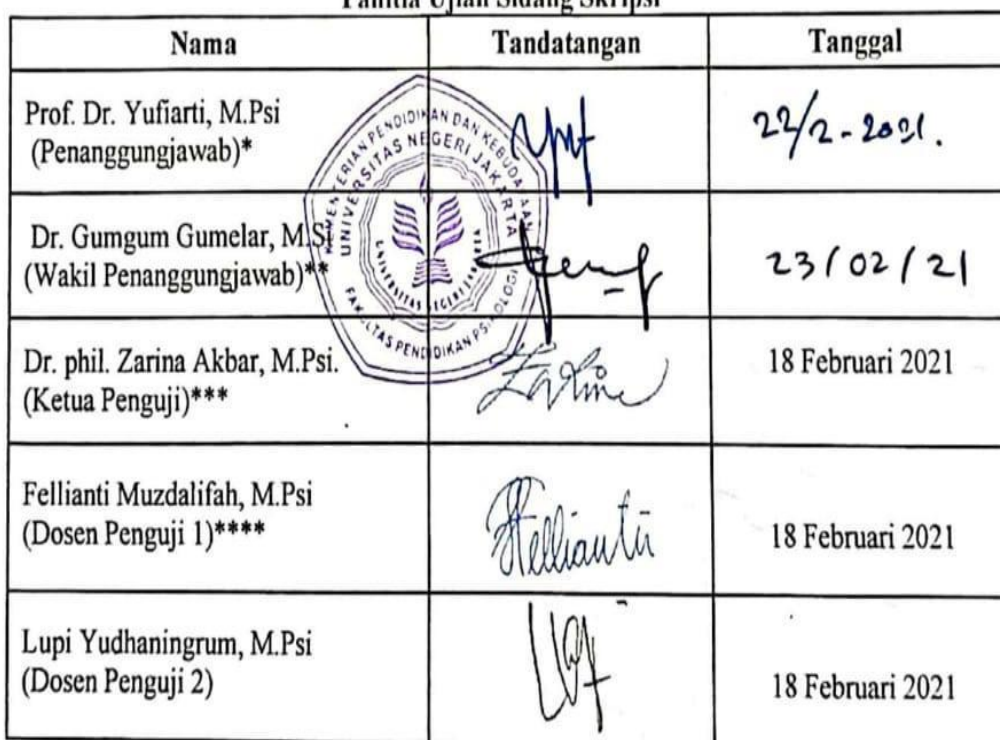 Panitia Ujian Sidang Skripsi
Nama Tandatangan Tanggal
Prof. Dr. Yufiarti, M.Psi
(Penanggungjawab)*
22/2-2021.
Dr. Gumgum Gumelar, M.Si
(Wakil Penanggungjawab)**
23/02/21
Dr. phil. Zarina Akbar, M.Psi.
(Ketua Penguji)***
18 Februari 2021
Fellianti Muzdalifah, M.Psi
(Dosen Penguji 1)****
Fellianti
18 Februari 2021
Lupi Yudhaningrum, M.Psi
(Dosen Penguji 2)
18 Februari 2021
KEMENTERIAN PENDIDIKAN DAN KEBUDAYAAN
UNIVERSITAS NEGERI JAKARTA
UNIVERSITAS NEGERI JAKARTA
FAKULTAS PENDIDIKAN PSIKOLOGI